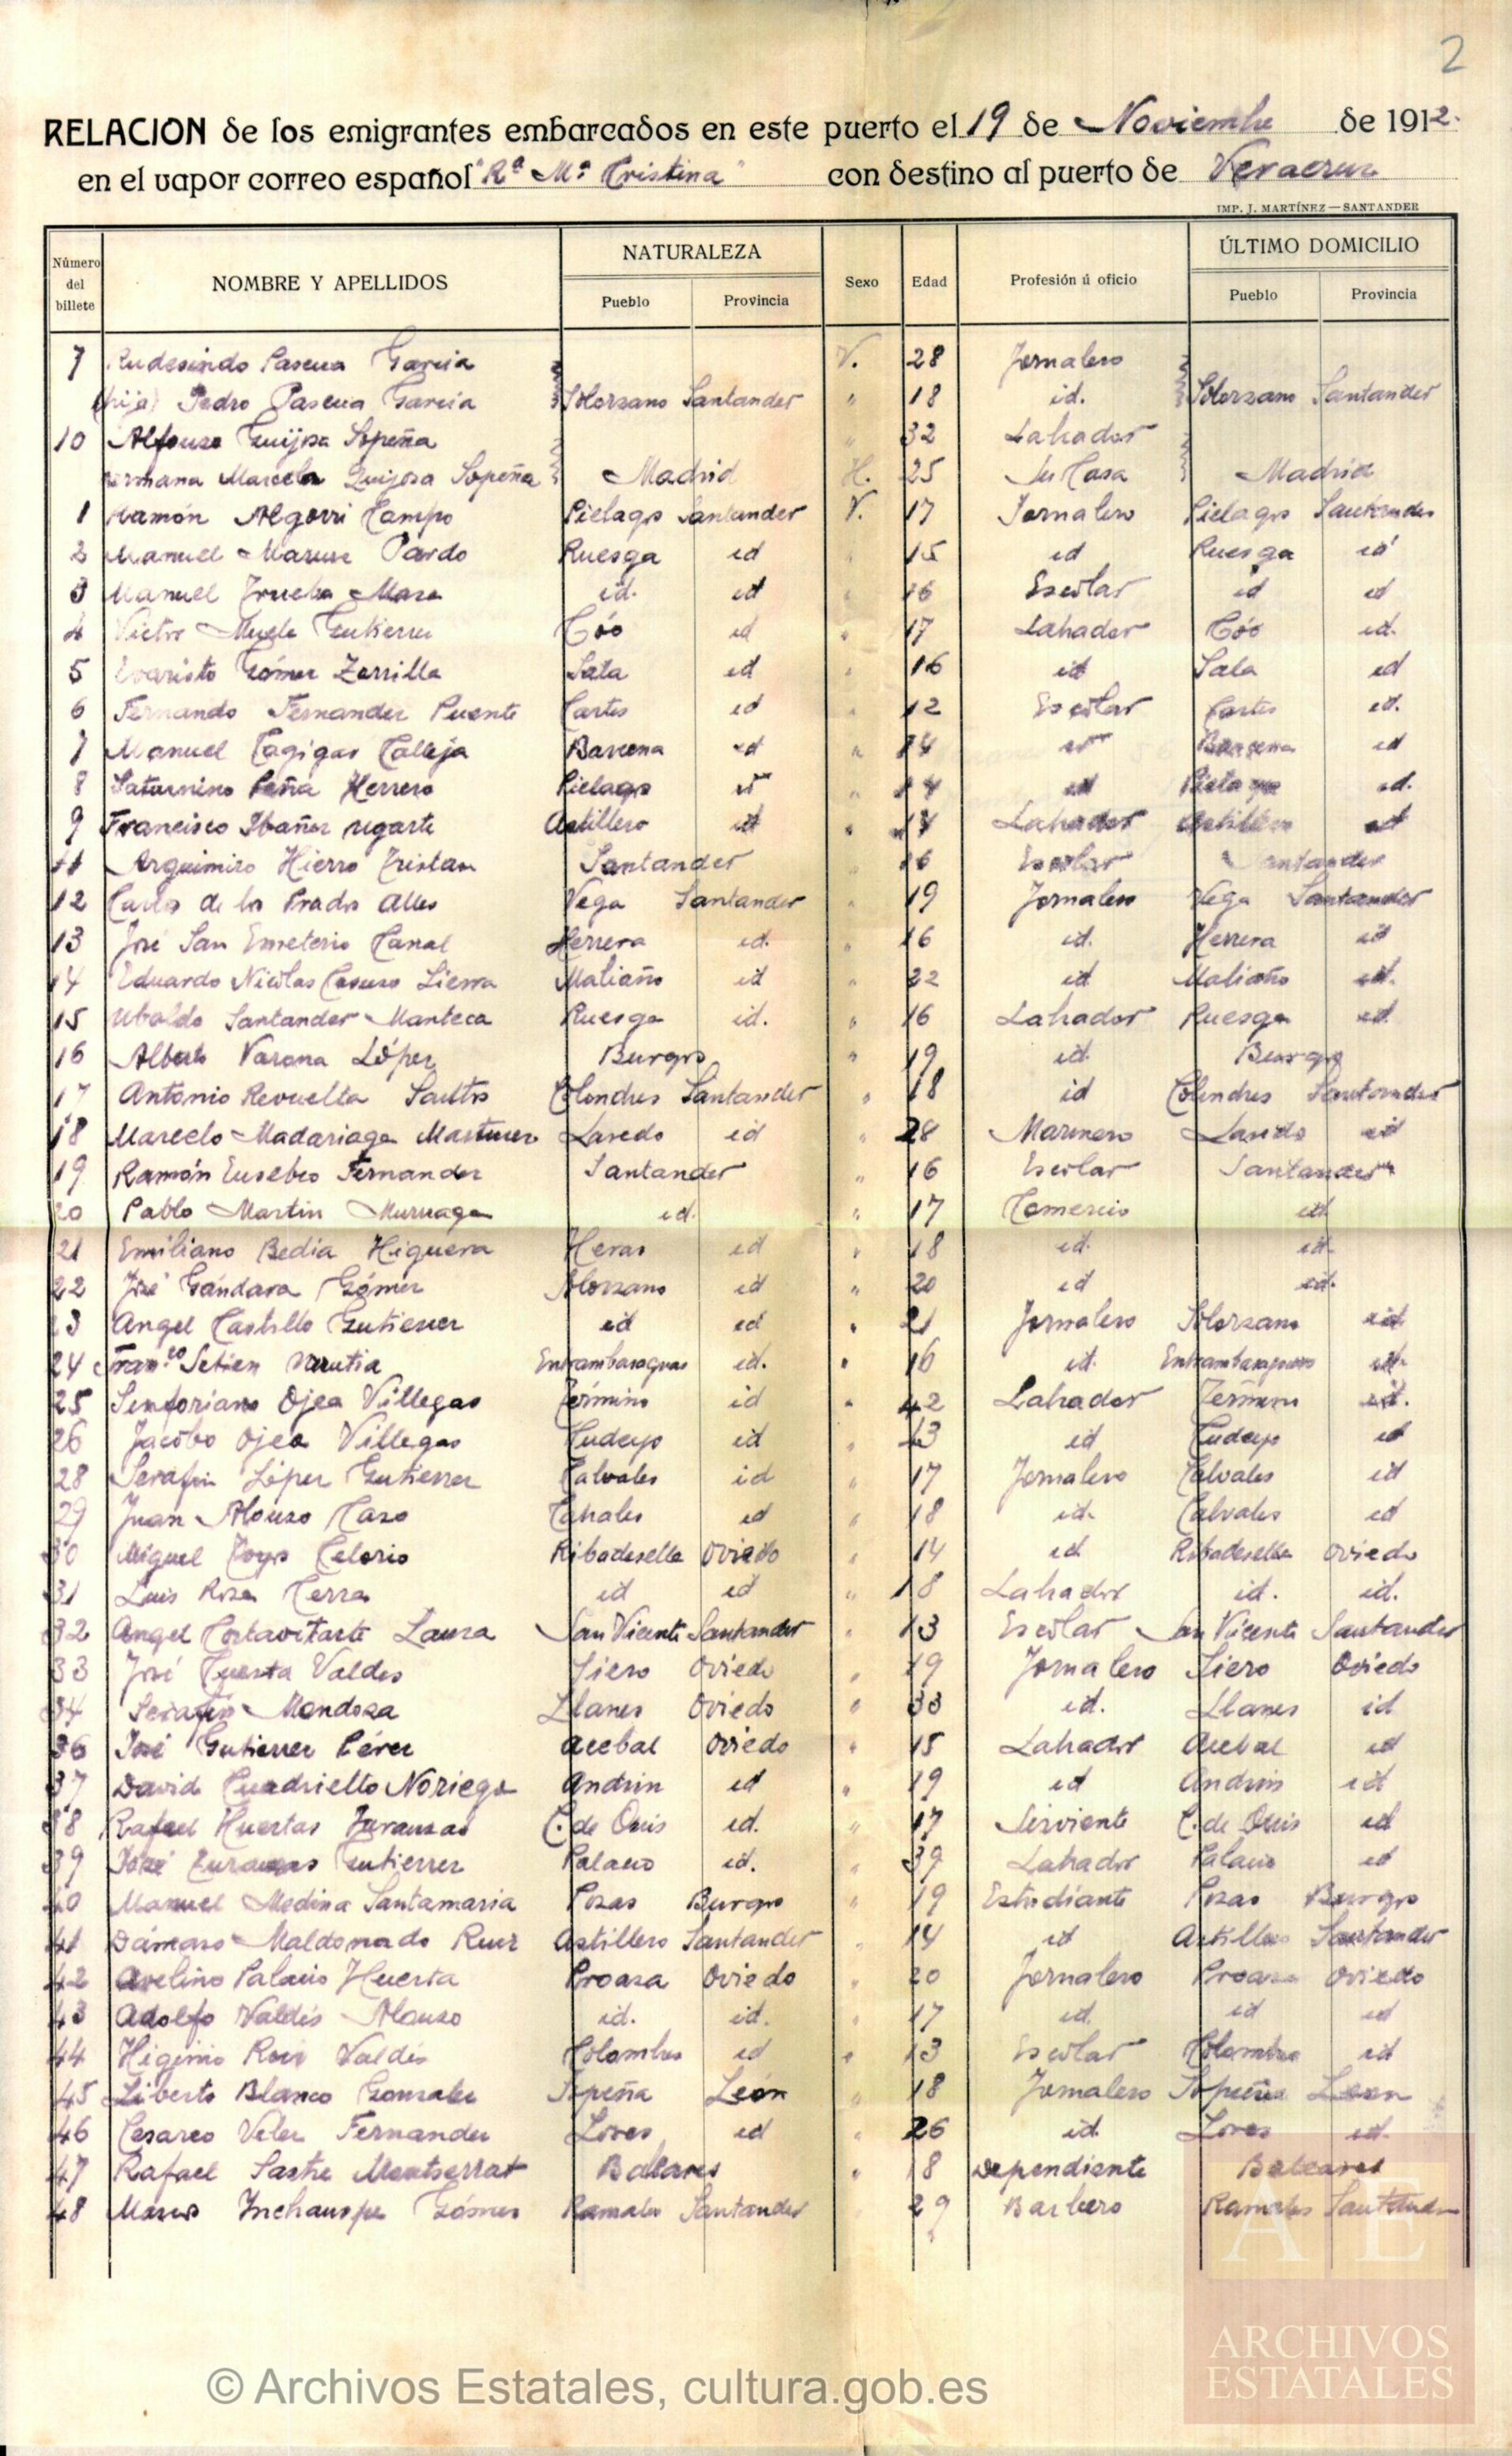 2
RELACION de los emigrantes embarcados en este puerto el 19 de Noviembre de 1912.
en el vapor correo español "Rª Mª Cristina" con destino al puerto de Veracruz
IMP. J. MARTÍNEZ—SANTANDER
Número del billete NOMBRE Y APELLIDOS NATURALEZA Pueblo Provincia Sexo Edad Profesión ú oficio ÚLTIMO DOMICILIO Pueblo Provincia
7 Rudesindo Pascua Garcia V. 28 Jornalero
Pedro Pascua Garcia Solorzano Santander " 18 id. Solorzano Santander
10 Alfonso Quijosa Sopeña " 32 Labrador
hermana Marcela Quijosa Sopeña Madrid H. 25 Su Casa Madrid
1 Ramón Algorri Campo Pielagos Santander V. 17 Jornalero Pielagos Santander
2 Manuel Pardo Ruesga id " 15 id Ruesga id
3 Manuel Trueba Maza id. id " 16 Escolar id id
4 Gutierrez Cóo id " 17 Labrador Cóo id.
5 Evaristo Gómez Zorrilla id " 16 id id
6 Fernando Fernandez Puente Cartes id " 12 Escolar Cartes id.
7 Manuel Cagigas Calleja Barcena id " 14 id Barcena id
8 Saturnino Peña Herrero Pielagos id " 14 id Pielagos id.
9 Francisco Ibañez Ugarte Astillero id " Labrador Astillero id
11 Arguimiro Hierro Tristan Santander " 16 Escolar Santander
12 Carlos de los Prados Vega Santander " 19 Jornalero Vega Santander
13 José San Emeterio Canal Herrera id. " 16 id. Herrera id
14 Eduardo Nicolas Casuso Sierra Maliaño id " 22 id Maliaño id.
15 Ubaldo Santander Manteca Ruesga id. " 16 Labrador Ruesga id
16 Alberto Varona López Burgos " 19 id. Burgos
17 Antonio Revuelta Colindres Santander " 18 id Colindres Santander
18 Marcelo Madariaga Martinez Laredo id " 28 Marinero Laredo id
19 Ramón Eusebio Fernandez Santander " 16 Escolar Santander
20 Pablo Martin Muruaga id. " 17 Comercio id
21 Emiliano Bedia Higuera Heras id " 18 id. id.
22 José Gándara Gómez Solorzano id " 20 id id.
23 Angel Castillo Gutierrez id id " 21 Jornalero Solorzano id
24 Franco Setien Entrambasaguas id. " 16 id. Entrambasaguas id.
25 Senforiano Ojea Villegas Término id " 42 Labrador Termino id.
26 Jacobo Ojea Villegas Cudeyo id " id Cudeyo id
28 Serafin López Gutierrez id " 17 Jornalero id
29 Juan Alonso Caso id " 18 id. id
30 Miguel Celorio Ribadesella Oviedo " 14 id Ribadesella Oviedo
31 Luis Roza Cerra id id " 18 Labrador id. id.
32 Angel Cortavitarte San Vicente Santander " 13 Escolar San Vicente Santander
33 José Cuesta Valdes Siero Oviedo " 19 Jornalero Siero Oviedo
34 Serafin Mendoza Llanes Oviedo " 33 id. Llanes id
36 José Gutierrez Pérez Acebal Oviedo " 15 Labrador Acebal id
37 David Cuadriello Noriega Andrin id " 19 id Andrin id
38 Rafael Huertas C. de Onis id. " 17 Sirviente C. de Onis id
39 José Gutierrez Palacio id. " 39 Labrador Palacio id
40 Manuel Medina Santamaria Pozas Burgos " 19 Estudiante Pozas Burgos
41 Dámaso Maldonado Ruiz Astillero Santander " 14 id Astillero Santander
42 Avelino Palacio Huerta Proaza Oviedo " 20 Jornalero Proaza Oviedo
43 Adolfo Valdés Alonso id. id. " 17 id. id id
44 Higinio Ruiz Valdés Colombres id " 13 Escolar Colombres id
45 Liberto Blanco Gonzalez Sopeña León " 18 Jornalero Sopeña Leon
46 Cesareo Velez Fernandez id " 26 id. id.
47 Rafael Sastre Montserrat Baleares " 18 Dependiente Baleares
48 Inchauspe Gómez Ramales Santander 29 Barbero Ramales Santander
AE
ARCHIVOS
ESTATALES
© Archivos Estatales, cultura.gob.es